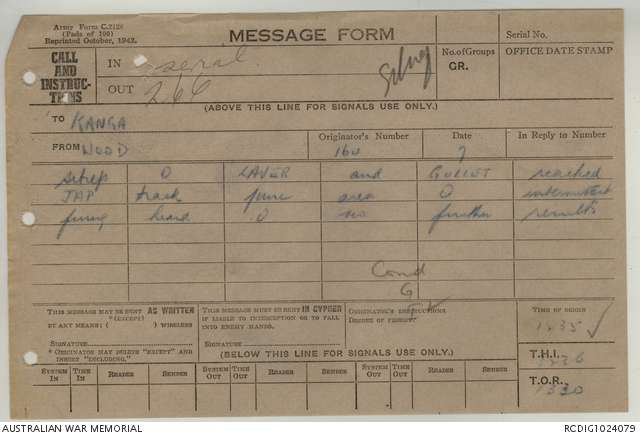 Army Form C.2128
(Pads of 100)
Reprinted October, 1942.
MESSAGE FORM
Serial No.
CALL AND INSTRUC-TIONS
IN
OUT 266
No. of Groups
GR.
OFFICE DATE STAMP
(ABOVE THIS LINE FOR SIGNALS USE ONLY.)
TO KANGA
FROM WOOD
Originator's Number
164
Date
7
In Reply to Number
sitrep O LAVER and GULLET reached
JAP track junc area O intermittent
firing heard O no further results
Comd
G
THIS MESSAGE MAY BE SENT AS WRITTEN
*(EXCEPT)
BY ANY MEANS: ( ) WIRELESS
SIGNATURE
* ORIGINATOR MAY DELETE "EXCEPT" AND INSERT "INCLUDING."
THIS MESSAGE MUST BE SENT IN CYPHER
IF LIABLE TO INTERCEPTION OR TO FALL INTO ENEMY HANDS.
SIGNATURE
ORIGINATOR'S INSTRUCTIONS
DEGREE OF PRIORITY
TIME OF ORIGIN
1235
(BELOW THIS LINE FOR SIGNALS USE ONLY.)
SYSTEM IN TIME IN READER SENDER SYSTEM OUT TIME OUT READER SENDER SYSTEM OUT TIME OUT READER SENDER
T.H.I.
1236
T.O.R.
1330
AUSTRALIAN WAR MEMORIAL
RCDIG1024079